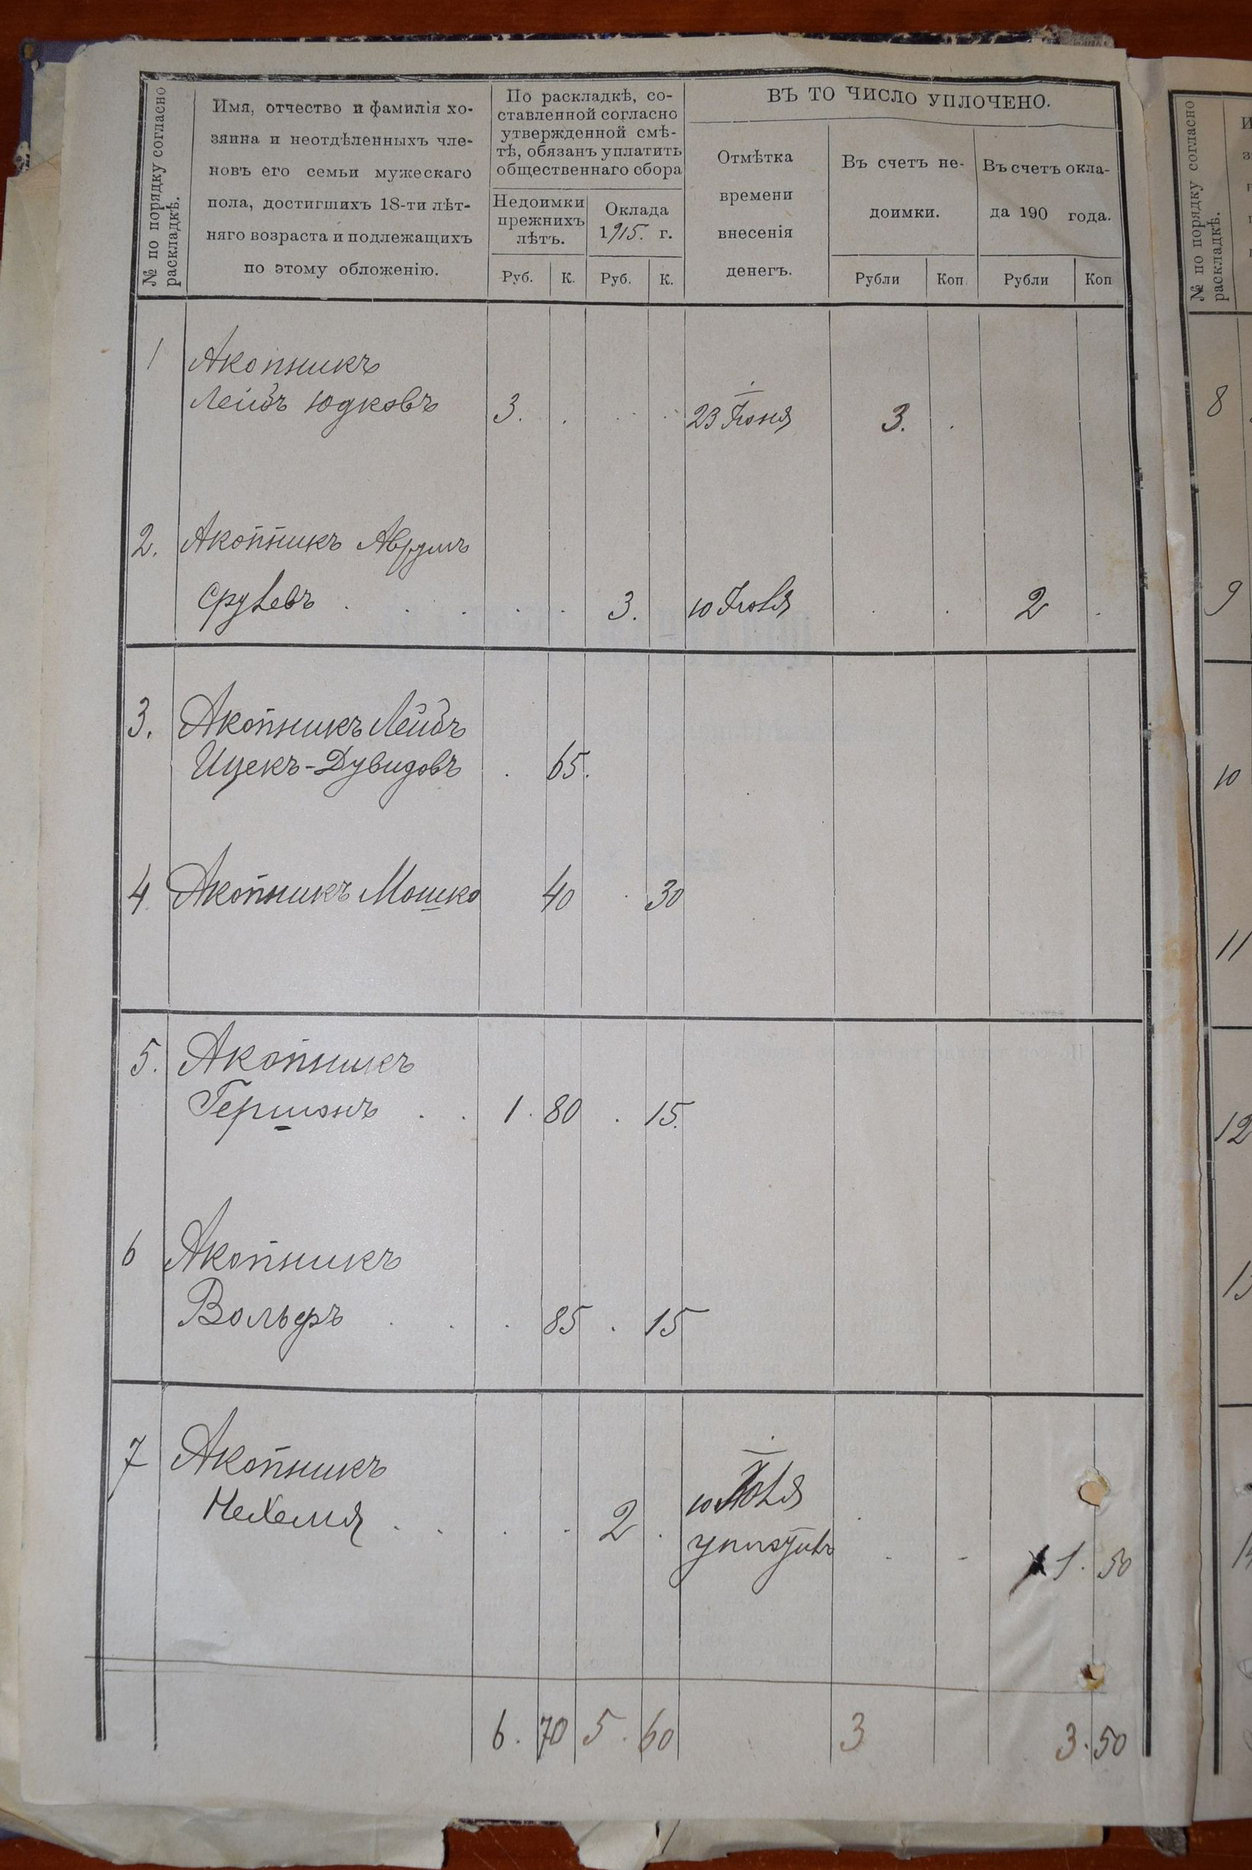 № по порядку согласно
раскладкѣ.
Имя, отчество и фамилія хо-
зяина и неотдѣленныхъ чле-
новъ его семьи мужескаго
пола, достигшихъ 18-ти лѣт-
няго возраста и подлежащихъ
по этому обложенію.
По раскладкѣ, со-
ставленной согласно
утвержденной смѣ-
тѣ, обязанъ уплатить
общественнаго сбора
Недоимки
прежнихъ
лѣтъ.
Руб. К.
Оклада
1915. г.
Руб. К.
ВЪ ТО ЧИСЛО УПЛОЧЕНО.
Отмѣтка
времени
внесенія
денегъ.
Въ счетъ не-
доимки.
Рубли Коп.
Въ счетъ окла-
да 190 года.
Рубли Коп
1 Акопникъ
Лейбъ Юдковъ 3. . 23 Іюня 3. .
2. Акопникъ Аврумъ
Срулевъ . . . . . 3. 10 Іюля . . 2 .
3. Акопникъ Лейбъ
Ицекъ-Дувидовъ . 65.
4 Акопникъ Мошко 40 . 30
5. Акопникъ
Гершонъ . . 1. 80 . 15.
6 Акопникъ
Вольфъ . . . 85 . 15
7 Акопникъ
Нехемия . . . . 2 . 10 Іюля
. - 1. 50
6. 70 5. 60 3 3. 50
№ по порядку согласно
раскладкѣ.
8
9
10
11
12